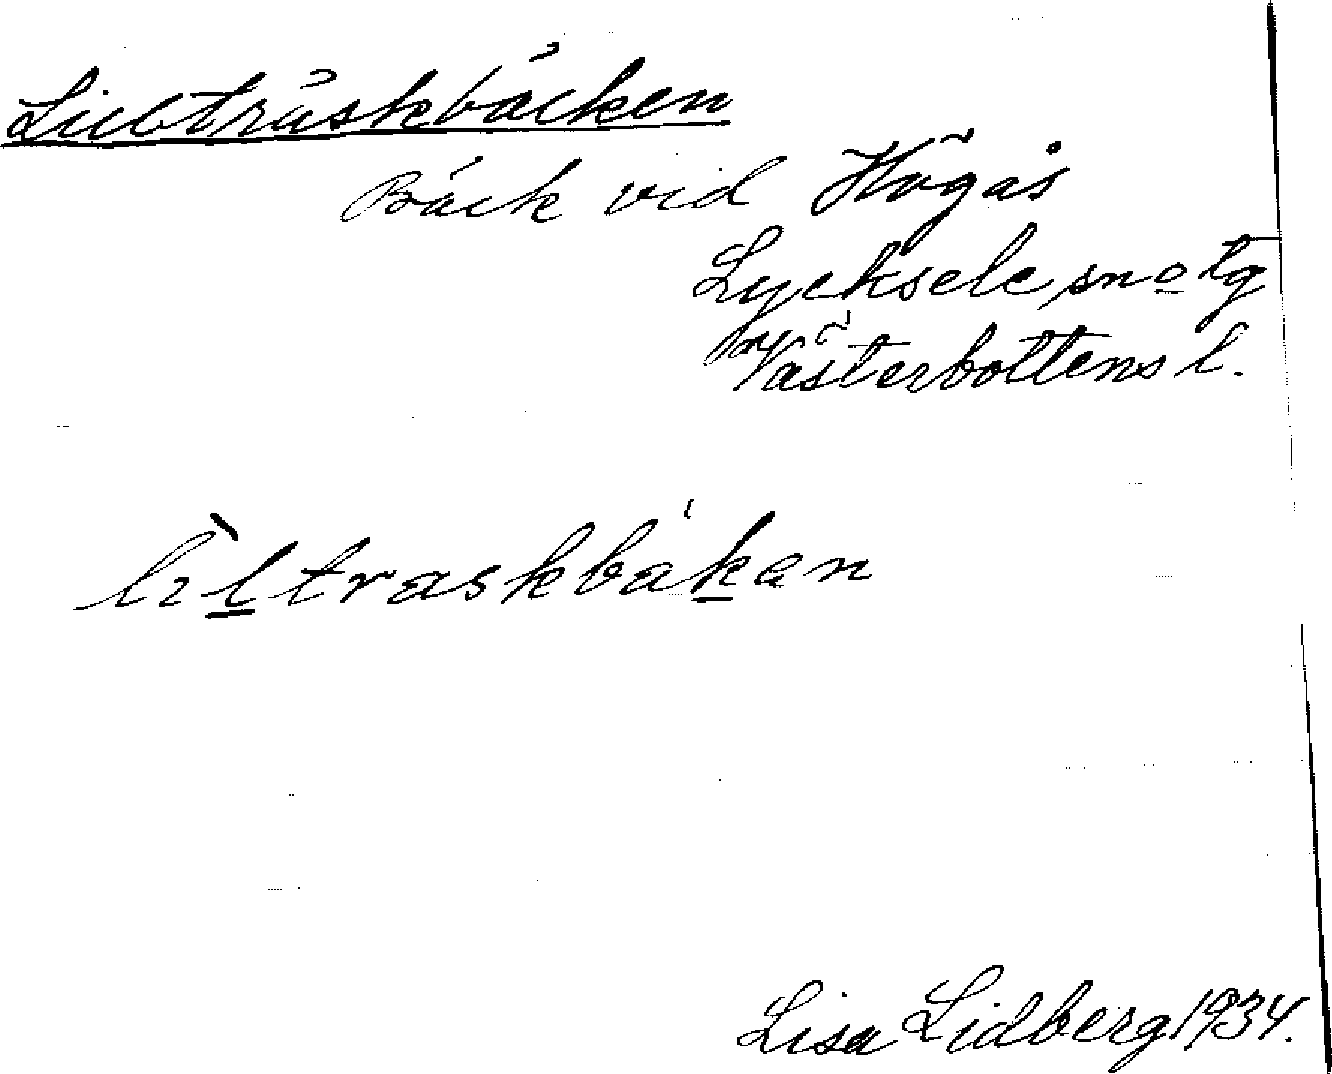 Lillträskbäcken
Bäck vid Högås
Lycksele sn o tg
Västerbottens l.
lıltraskbákan
Lisa Lidberg 1934.